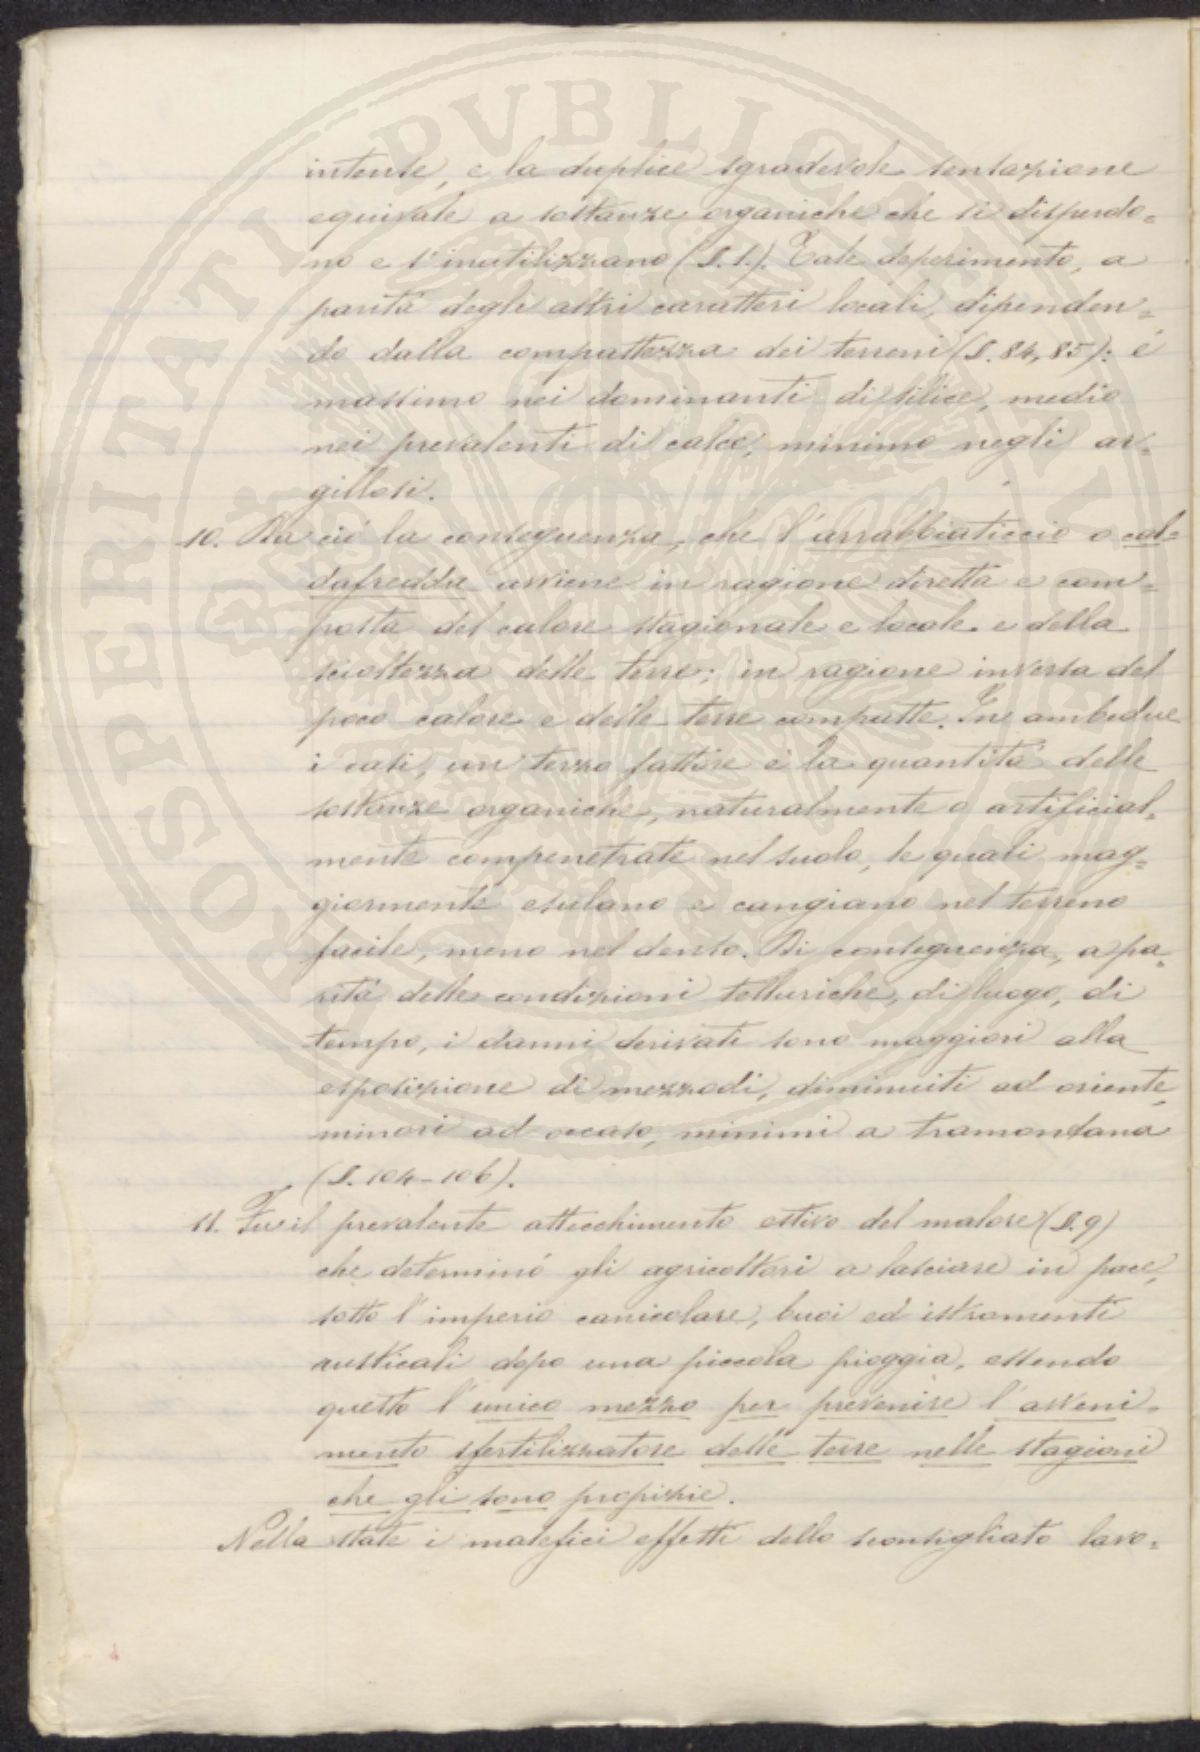 intense, e la duplice sgradevole sensazione
equivale a sostanze organiche che si disperdo=
no e s'inutilizzano (§. 1.). Tale deperimento, a
parità degli altri caratteri locali, dipenden=
do dalla compattezza dei terreni (§. 84, 85): é
massimo nei dominanti di silice, medio
nei prevalenti di calce, minimo negli ar=
gillosi.
10. Da ció la conseguenza, che l'arrabbiaticcio o cal=
dafredda avviene in ragione diretta e com=
posta del calore stagionale e locale e della
scioltezza delle terre; in ragione inversa del
poco calore e delle terre compatte. In ambedue
i casi, un terzo fattore é la quantitá delle
sostanze organiche, naturalmente o artificial=
mente compenetrate nel suolo, le quali mag=
giormente esulano e cangiano nel terreno
facile, meno nel denso. Di conseguenza, a pa=
ritá delle condizioni telluriche, di luogo, di
tempo, i danni derivati sono maggiori alla
esposizione di mezzodi, diminuiti ad oriente,
minori ad occaso, minimi a tramontana
(§. 104-106).
11. Fu il prevalente attecchimento estivo del malore (§. 9)
che determinó gli agricoltori a lasciare in pace,
sotto l'imperio canicolare, buoi ed istromenti
rusticali dopo una piccola pioggia, essendo
questo l'unico mezzo per prevenire l'avveni=
mento sfertilizzatore delle terre nelle stagioni
che gli sono propizie.
Nella state i malefici effetti dello sconsigliato lavo=
PUBLICAE
PROSPERITATI